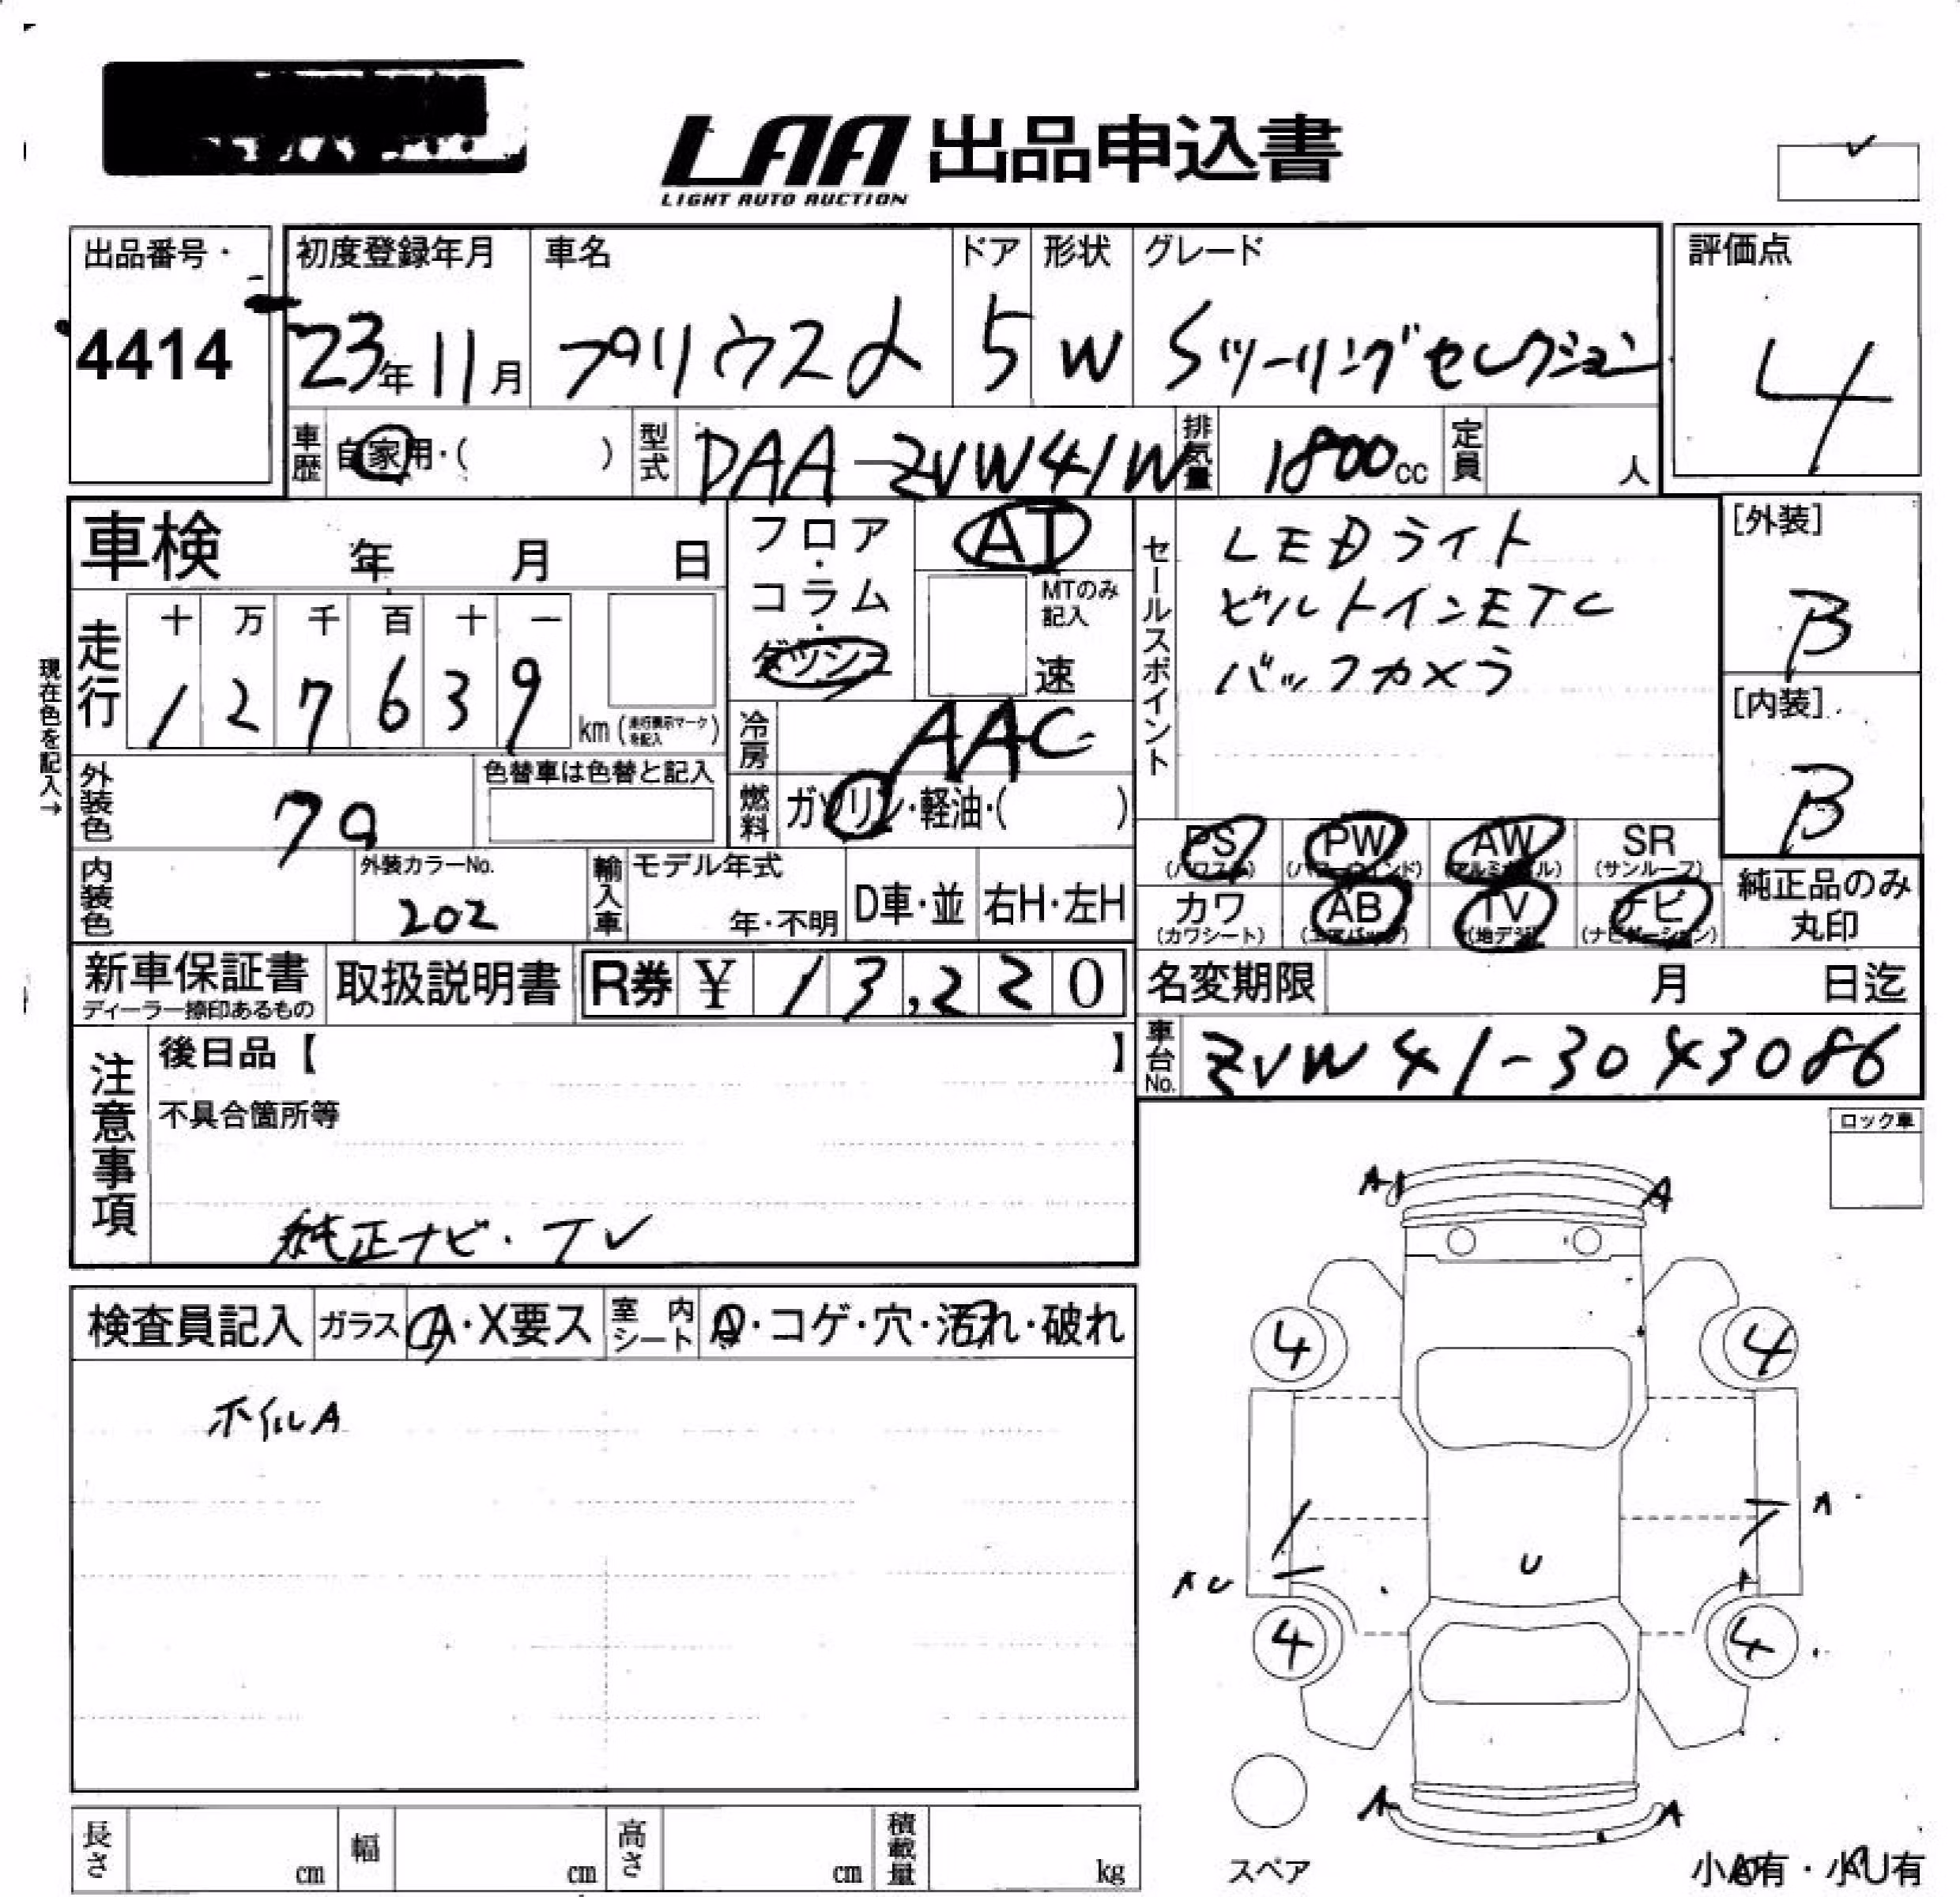 LAA 出品申込書
LIGHT AUTO AUCTION
出品番号
4414
初度登録年月
23年11月
車名
プリウスα
ドア
5
形状
W
グレード
Sツーリングセレクション
評価点
4
車歴
自家用・( )
型式
DAA-ZVW41W
排気量
1800cc
定員
人
車検 年 月 日
フロア・コラム・ダッシュ
AT
MTのみ記入
速
セールスポイント
LEDライト
ビルトインETC
バックカメラ
[外装]
B
[内装]
B
現在色を記入→
走行
十 万 千 百 十 一
1 2 7 6 3 9
km(走行表示マークを記入)
冷房
AAC
外装色
色替車は色替と記入
燃料
ガソリン・軽油・( )
PS PW AW SR
(パワステ) (パワーウィンド) (アルミホイル) (サンルーフ)
カワ AB TV ナビ
(カワシート) (エアバッグ) (地デジ) (ナビゲーション)
純正品のみ
丸印
内装色
外装カラーNo.
202
輸入車
モデル年式
年・不明
D車・並
右H・左H
新車保証書
ディーラー捺印あるもの
取扱説明書
R券 ¥ 13,220
名変期限 月 日迄
車台No.
ZVW41-3043086
注意事項
後日品【 】
不具合箇所等
純正ナビ・TV
ロック車
検査員記入
ガラス
A・X要ス
室内シート
・コゲ・穴・汚れ・破れ
ホイルA
A1 A
4 4
A
AU
U
4 4
A A
スペア
小A有・小U有
長さ cm
幅 cm
高さ cm
積載量 kg